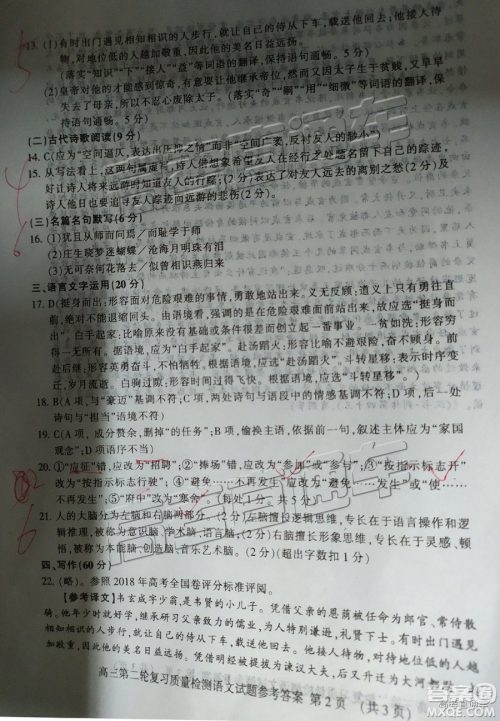 13. (1)有时出门遇见相知相识的人步行,就让自己的侍从下车,载送他回去;他接人待
物,对地位低的人越加敬重,因此他的美名日益远扬。
(落实“知识”“下”“接人”“善”等词语的翻译,保持语句通畅。5 分)
(2)皇帝对他的才能感到惊奇,有意要让他继承帝位,然而又因太子生于贫贱,又早早
失去了母亲,所以不忍心废除太子。(落实“奇”“嗣”“用”“细微”等词语的翻译,保
持语句通畅。5 分)
(二)古代诗歌阅读(9 分)
14. C(应为“空间逼仄,表达出压抑之情”而非“空间广袤,反衬友人的渺小”)
15. 从写法看上,这两句属虚写,诗人想象希望友人在经行之处题名留下自己的踪迹,
好让诗人将来远游时查访友人的行踪;(2 分)表达了对友人远去的离别之愁(2 分)
诗人他日也要追随友人踪迹而远游的悲伤(2 分)。
(三)名篇名句默写(6 分)
16. (1)犹且从师而问焉/而耻学于师
(2)庄生晓梦迷蝴蝶/沧海月明珠有泪
(3)无可奈何花落去/似曾相识燕归来
三、语言文字运用(20 分)
17. D(挺身而出:形容面对危险艰难的事情,勇敢地站出来。义无反顾:道义上只有勇往直
前,绝对不能退缩回头。由语境看,强调的是在危险艰难时站出来,故应选“挺身而
出”。白手起家:比喻原来没有基础或条件很差而创立起一番事业。一贫如洗:形容穷
得一无所有。据语境,应为“白手起家”。赴汤蹈火:形容比喻不避艰险,奋不顾身。前
赴后继:形容英勇奋斗,不怕牺牲。据语境,应选“赴汤蹈火”。斗转星移:表示时序变
迁,岁月流逝。白驹过隙:形容时间过得飞快。据语境,应选“斗转星移”。)
18. B(A 项,与“豪迈”基调不符;C 项,两处诗句与语段中的情感基调不同;D 项,后一处
诗句与“相当”语境不符)
19. C(A 项,成分赘余,删掉“的任务”;B 项,偷换主语,依据前一句,叙述主体应为“家国
观念”;D 项语序不当)
20. ①“应征”错,应改为“招聘”;②“捧场”错,应改为“参加”或“参与”;③“按指示标志开”
改为“按指示标志行驶”;④“避免……不再发生”应改为“避免……发生”或“使……
不再发生”;⑤“府中”改为“寒舍”。(每处 1 分,共 5 分)
21. 人的大脑分为左右脑和右脑两部分。(1 分)左脑擅长逻辑思维,专长在于语言操作和逻
辑推理,被称为意识脑、学术脑、语言脑。(2 分)右脑擅长形象思维,专长在于灵感、顿
悟,被称为本能脑、创造脑、音乐艺术脑。(2 分)(超出字数扣 1 分)
四、写作(60 分)
22. (略)。参照 2018 年高考全国卷评分标准评阅。
【参考译文】韦玄成字少翁,是韦贤的小儿子。凭借父亲的恩荫被任命为郎官、常侍散
骑。他年少时就好学,继承研习父亲致力的儒业,为人特别谦逊,礼敬下士。出门遇见
相知相识的人步行,就让自己的侍从下车,载送他回去。他接人待物,对待地位低的人越
加敬重,因此他的美名日益远扬。凭借通晓经书被提拔为谏议大夫,后又升迁为大河都尉。
高三第二轮复习质量检测语文试题参考答案 第 2 页 (共 3 页)
答案圈
MXQE.COM